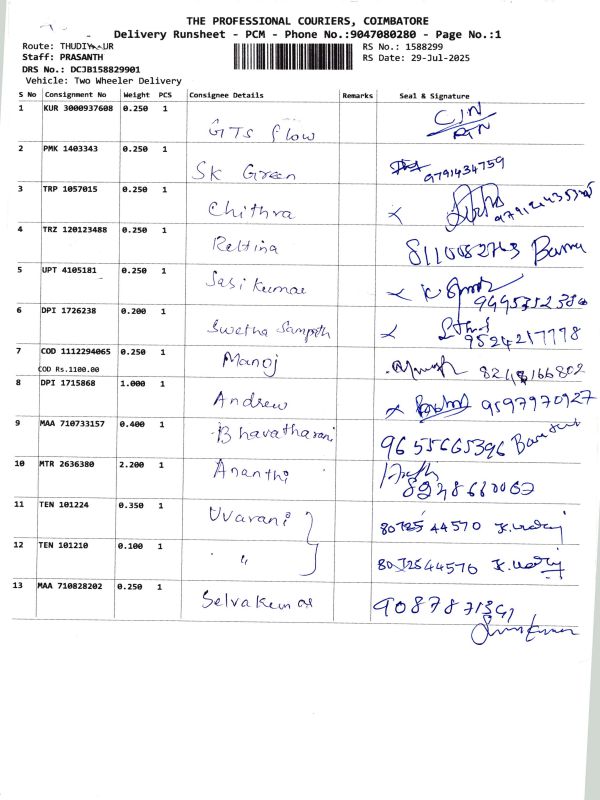 THE PROFESSIONAL COURIERS, COIMBATORE
Delivery Runsheet - PCM - Phone No.:9047080280 - Page No.:1
Route: THUDIYALUR RS No.: 1588299
Staff: PRASANTH RS Date: 29-Jul-2025
DRS No.: DCJB158829901
Vehicle: Two Wheeler Delivery
S No Consignment No Weight PCS Consignee Details Remarks Seal & Signature
1 KUR 3000937608 0.250 1 GTS flow
2 PMK 1403343 0.250 1 SK Green 9791434759
3 TRP 1057015 0.250 1 Chithra
4 TRZ 120123488 0.250 1
5 UPT 4105181 0.250 1 Sasi Kumar
6 DPI 1726238 0.200 1 Swetha Sampath 9524217778
7 COD 1112294065 0.250 1 Manoj
COD Rs.1100.00
8 DPI 1715868 1.000 1 Andrew 9597970927
9 MAA 710733157 0.400 1 Bhavatharani 9655665396
10 MTR 2636380 2.200 1 Ananthi
11 TEN 101224 0.350 1 Uvarani
12 TEN 101210 0.100 1 "
13 MAA 710828202 0.250 1 Selvakumar